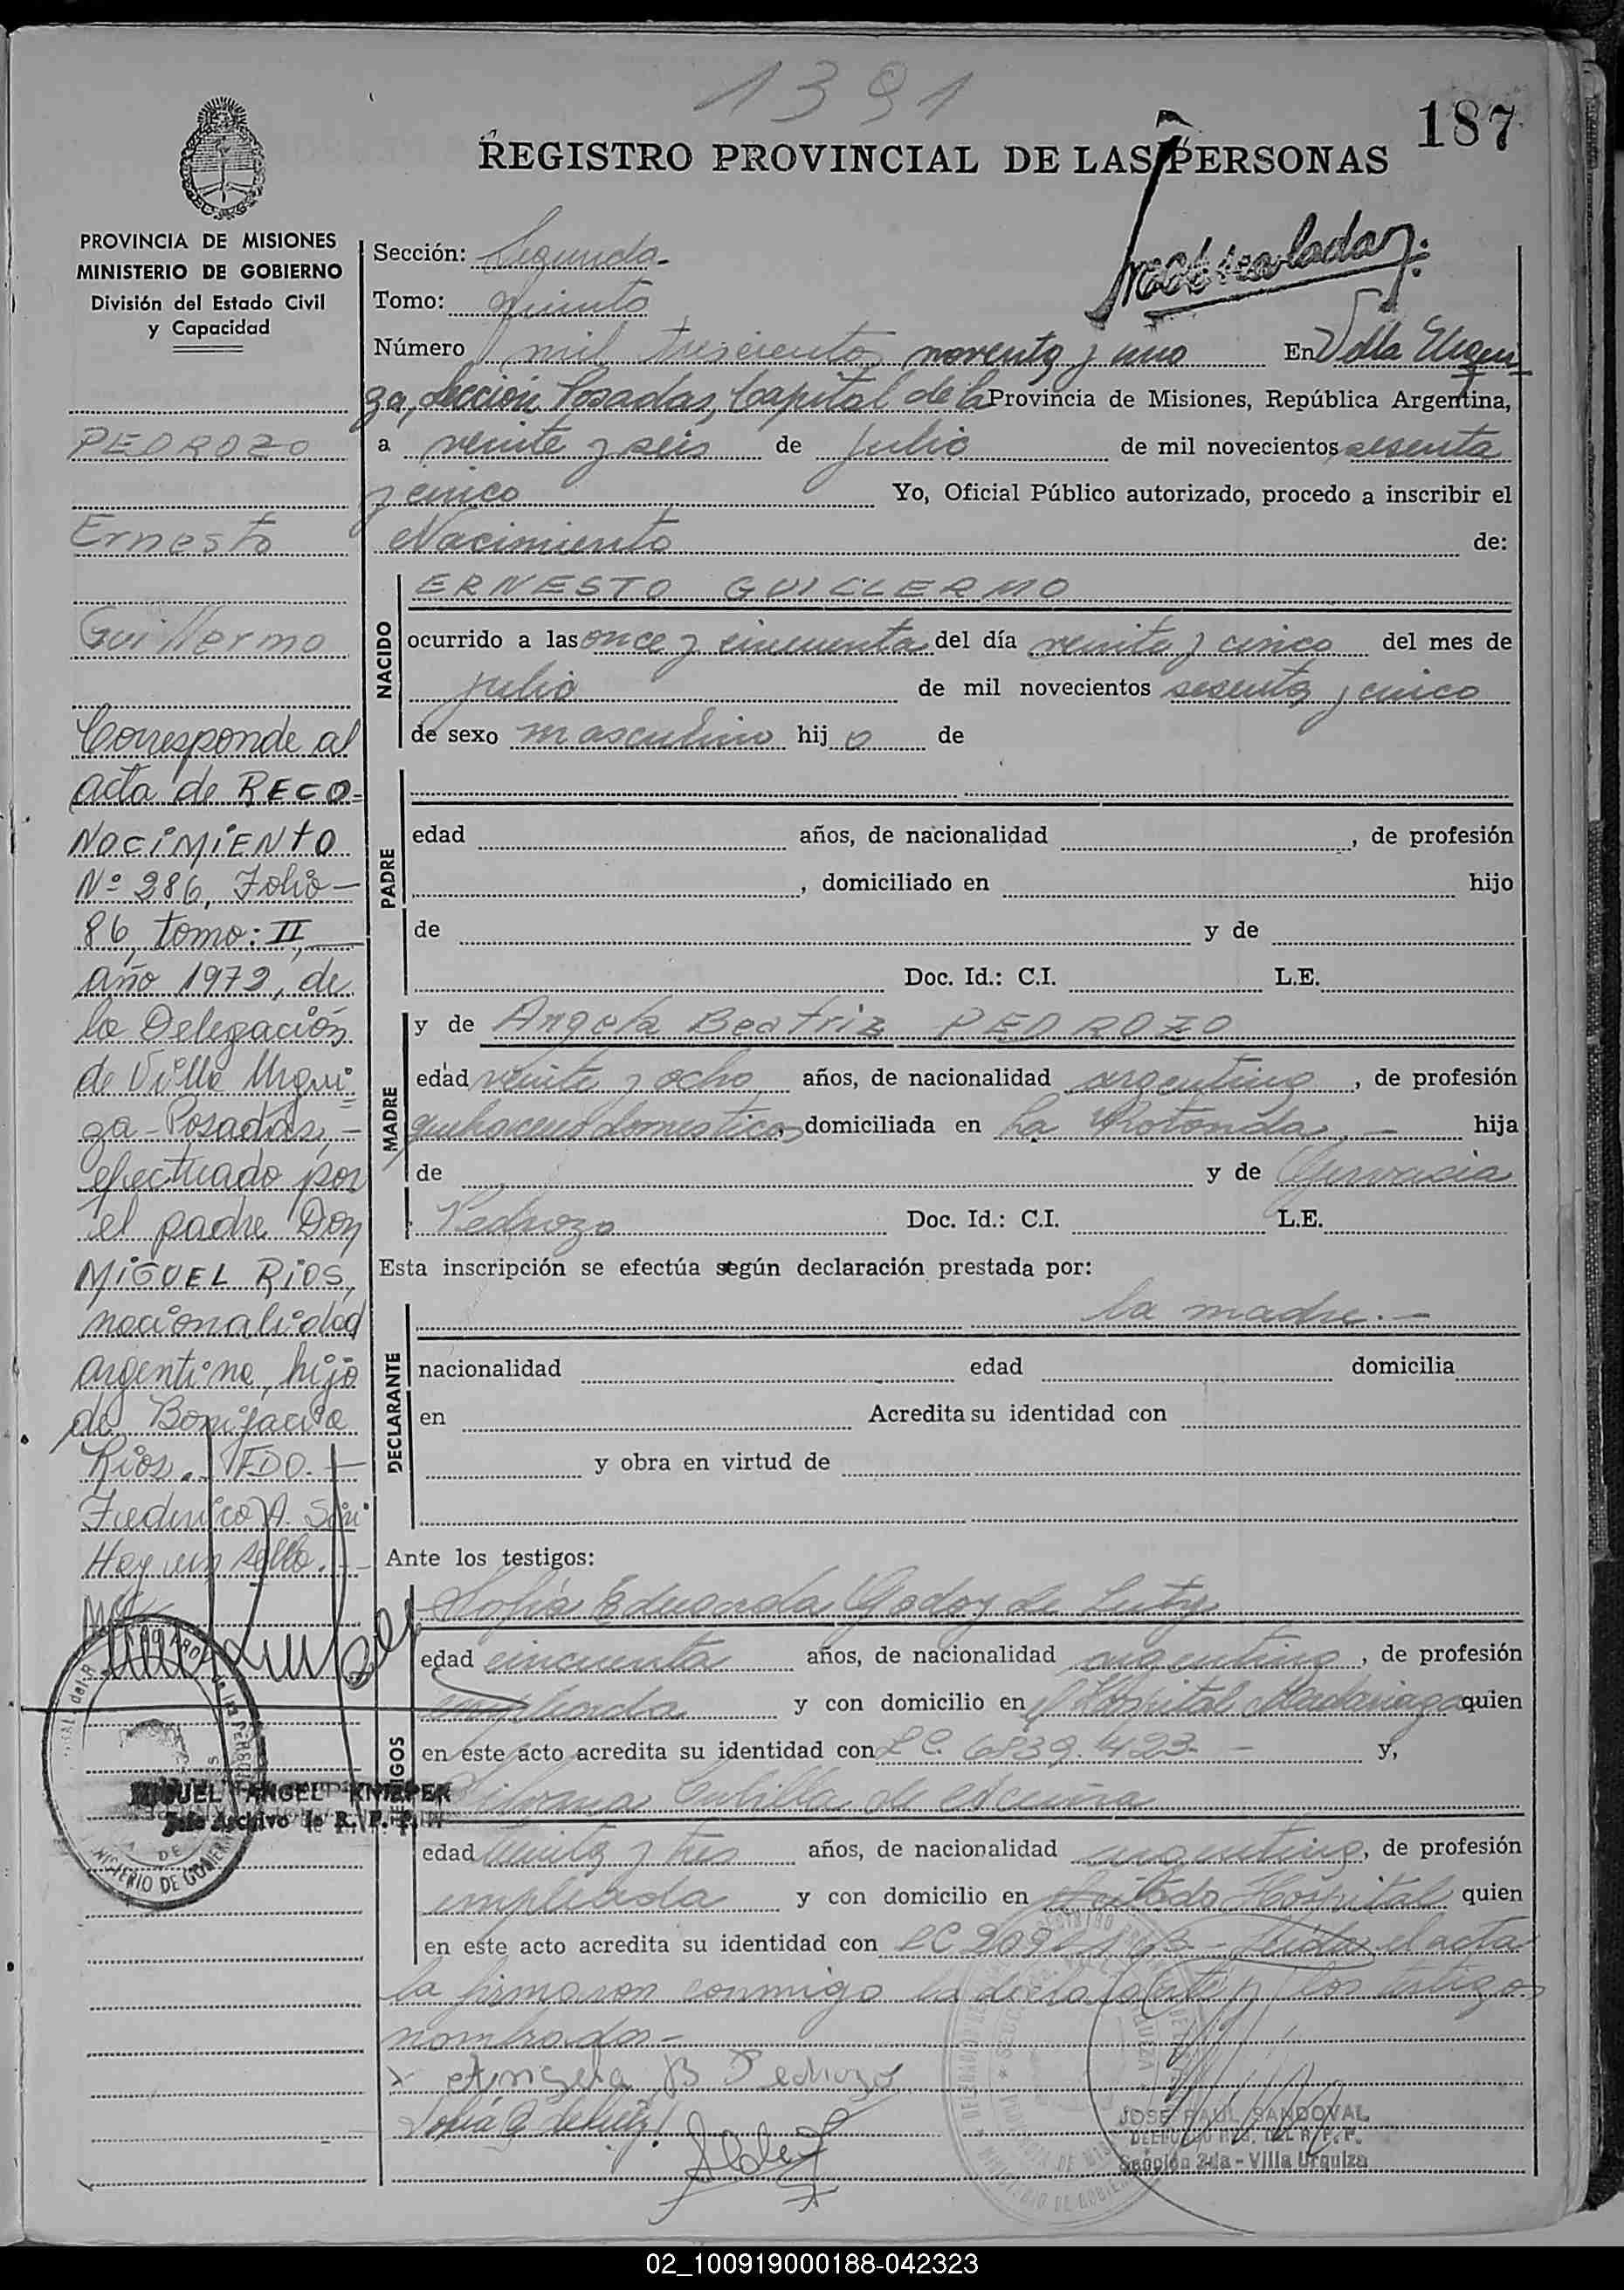 1391
187
REGISTRO PROVINCIAL DE LAS PERSONAS
PROVINCIA DE MISIONES
MINISTERIO DE GOBIERNO
División del Estado Civil
y Capacidad
PEDROZO
Ernesto
Guillermo
Corresponde al
acta de RECO-
NOCIMIENTO
Nº 286, Folio
86, tomo: II,
año 1973, de
la Delegación
de Villa Urqui
za - Posadas, -
efectuado por
el padre Don
MIGUEL RIOS,
nacionalidad
argentina, hijo
de Bonifacia
Rios. FDO. -
Federico A.
Hay un sello. -
MIGUEL ANGEL
Jefe Archivo de R. P. P.
MINISTERIO DE GOBIERNO
Sección: Segunda.-
Tomo:
Número mil trescientos noventa y uno En Villa Urqui
za, Sección Posadas, Capital de la Provincia de Misiones, República Argentina,
a veinte y seis de julio de mil novecientos sesenta
y cinco Yo, Oficial Público autorizado, procedo a inscribir el
Nacimiento de:
NACIDO
ERNESTO GUILLERMO
ocurrido a las once y cincuenta del día veinte y cinco del mes de
julio de mil novecientos sesenta y cinco
de sexo masculino hijo de
PADRE
edad años, de nacionalidad , de profesión
, domiciliado en hijo
de y de
Doc. Id.: C.I. L.E.
MADRE
y de Angela Beatriz PEDROZO
edad veinte y ocho años, de nacionalidad argentina, de profesión
quehaceres domesticos domiciliada en La Rotonda, - hija
de y de Gervacia
Pedrozo Doc. Id.: C.I. L.E.
Esta inscripción se efectúa según declaración prestada por:
DECLARANTE
la madre. -
nacionalidad edad domicilia
en Acredita su identidad con
y obra en virtud de
Ante los testigos:
Sofia Eduarda Godoy de
edad cincuenta años, de nacionalidad argentina, de profesión
empleada y con domicilio en el Hospital Madariaga quien
en este acto acredita su identidad con LC. 6839.423 - y,
de Acuña
edad veinte y tres años, de nacionalidad argentina, de profesión
empleada y con domicilio en el citado Hospital quien
en este acto acredita su identidad con LC Leida el acta
la firmaron conmigo la declarante y los testigos
nombrados -
Angela B Pedrozo
JOSE RAUL SANDOVAL
Sección 2da - Villa Urquiza
02_100919000188-042323